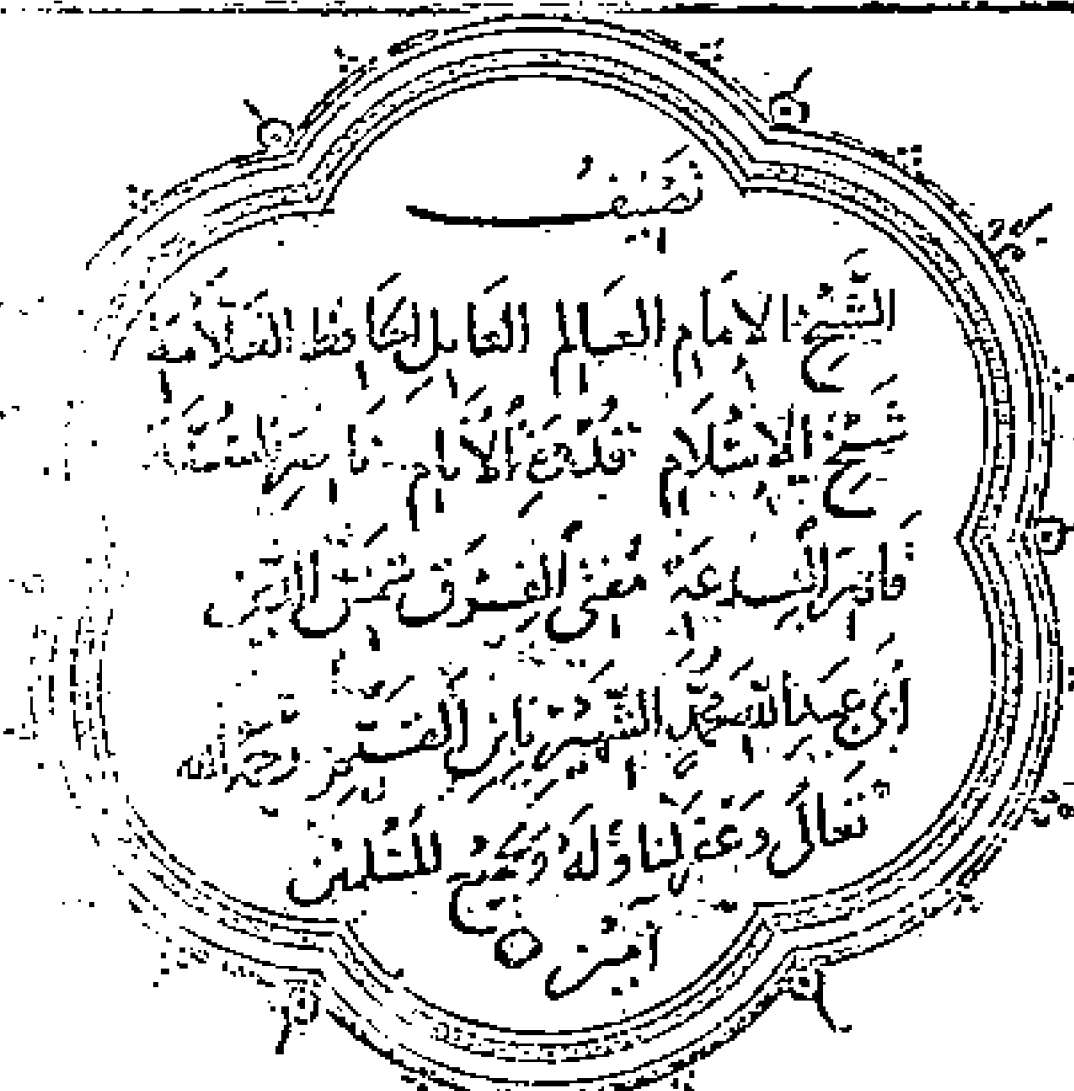 تَصْنِيفُ
الشَّيْخِ الإِمَامِ العَالِمِ العَامِلِ الحَافِظِ العَلَّامَة
شَيْخِ الإِسْلَامِ قُدْوَةِ الأَنَامِ نَاصِرِ السُّنَّة
قَامِعِ البِدْعَةِ مُفْتِي الفِرَقِ شَمْسِ الدِّينِ
أَبِي عَبْدِ اللهِ مُحَمَّدٍ الشَّهِيرِ بِابْنِ القَيِّمِ رَحِمَهُ الله
تَعَالَى وَغَفَرَ لَنَا وَلَهُ وَلِجَمِيعِ المُسْلِمِينَ
آمِين